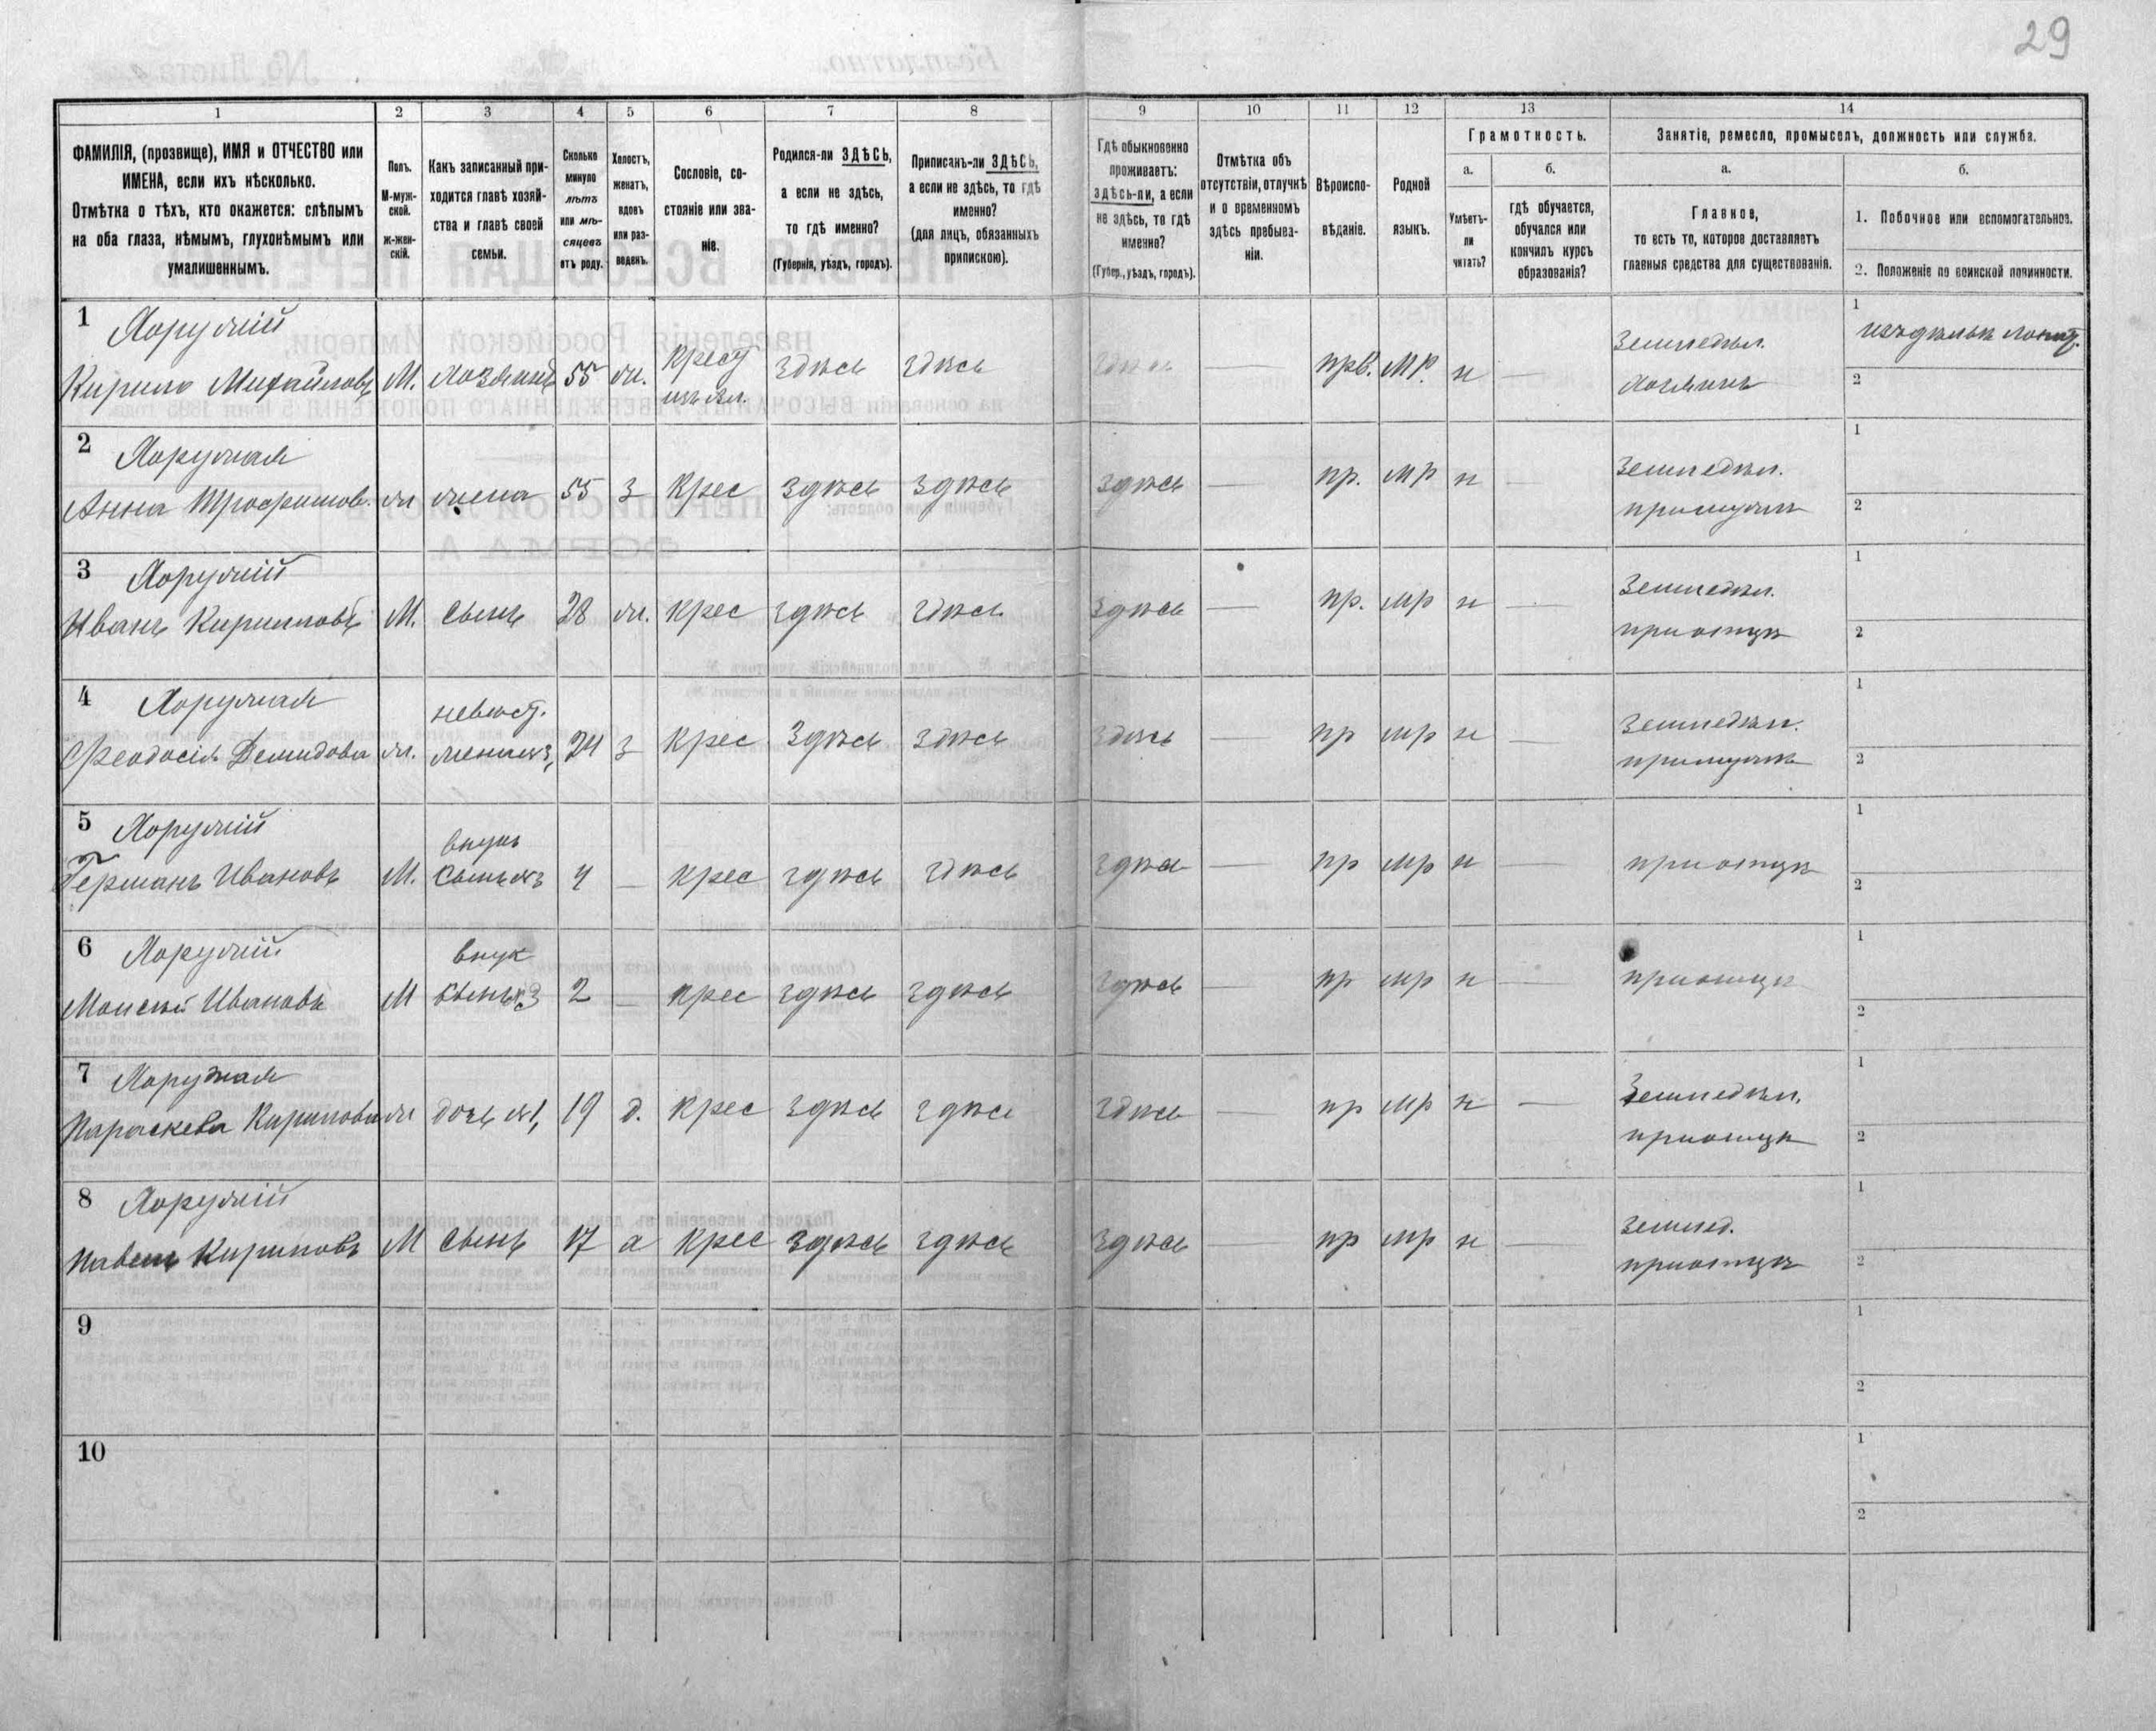 29
1
2
3
4
5
6
7
8
9
10
11
12
13
14
ФАМИЛІЯ, (прозвище), ИМЯ и ОТЧЕСТВО или
ИМЕНА, если ихъ нѣсколько.
Отмѣтка о тѣхъ, кто окажется: слѣпымъ
на оба глаза, нѣмымъ, глухонѣмымъ или
умалишеннымъ.
Полъ.
М-муж-
ской.
ж-жен-
скій.
Какъ записанный при-
ходится главѣ хозяй-
ства и главѣ своей
семьи.
Сколько
минуло
лѣтъ
или мѣ-
сяцевъ
отъ роду.
Холостъ,
женатъ,
вдовъ
или раз-
веденъ.
Сословіе, со-
стояніе или зва-
ніе.
Родился-ли ЗДѢСЬ,
а если не здѣсь,
то гдѣ именно?
(Губернія, уѣздъ, городъ).
Приписанъ-ли ЗДѢСЬ,
а если не здѣсь, то гдѣ
именно?
(для лицъ, обязанныхъ
припискою).
Гдѣ обыкновенно
проживаетъ:
здѣсь-ли, а если
не здѣсь, то гдѣ
именно?
(Губер., уѣздъ, городъ).
Отмѣтка объ
отсутствіи, отлучкѣ
и о временномъ
здѣсь пребыва-
ніи.
Вѣроиспо-
вѣданіе.
Родной
языкъ.
Грамотность.
а.
Умѣетъ-
ли
читать?
б.
гдѣ обучается,
обучался или
кончилъ курсъ
образованія?
Занятіе, ремесло, промыселъ, должность или служба.
а.
Главное,
то есть то, которое доставляетъ
главныя средства для существованія.
б.
1. Побочное или вспомогательное.
2. Положеніе по воинской повинности.
1 Хоружій
Кирило Михайловъ М. Хозяинъ 55 ж. крест здѣсь здѣсь здѣсь — прв. МР. н —
изъ вл.
Земледѣл.
Хозяинъ
1
2
2 Хоружая
Анна Трофимов. ж жена 55 з крес здѣсь здѣсь здѣсь — пр. МР н —
Земледѣл.
при мужѣ
1
2
3 Хоружій
Иванъ Кирилловъ М. сынъ 28 ж. крес здѣсь здѣсь здѣсь — пр. мр н —
Земледѣл.
при отцѣ
1
2
4 Хоружая
невѣст.
Феодосія Демидова ж. жена №3, 24 з крес здѣсь здѣсь здѣсь — пр мр н —
Земледѣл.
при мужѣ
1
2
5 Хоружій
внукъ
Германъ Ивановъ М. 4 — крес здѣсь здѣсь здѣсь — пр мр н —
при отцѣ
1
2
6 Хоружій
внук
Моисей Ивановъ М сынъ №3 2 — крес здѣсь здѣсь здѣсь — пр мр н —
при отцѣ
1
2
7 Хоружая
Параскева Кирилова ж дочь №1, 19 д. крес здѣсь здѣсь здѣсь — пр мр н —
Земледѣл.
при отцѣ
1
2
8 Хоружій
Павелъ Кириловъ М сынъ 17 крес здѣсь здѣсь здѣсь — пр мр н —
землед.
при отцѣ
1
2
9
1
2
10
1
2